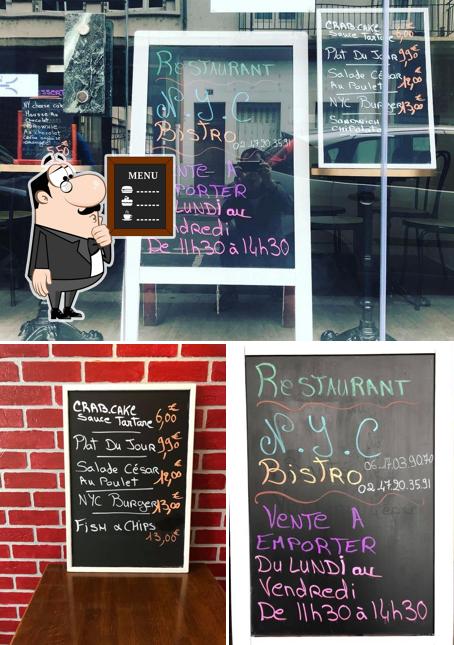 RESTAURANT
N.Y.C
BISTRO
02 47.20.35.91
VENTE A
EMPORTER
DU LUNDI au
Vendredi
De 11h30 à 14h30
CRAB.CAKE
Sauce Tartare 6,00€
Plat Du Jour 9,90€
Salade César
Au Poulet 12,00€
NYC Burger 13,00€
SANDWICH
CHIPOLATA
NY cheese cake
Mousse Au
Chocolat
BROWNIE
Au chocolat
MENU
CRAB.CAKE
Sauce Tartare 6,00€
Plat Du Jour 9,90€
Salade César
Au Poulet 12,00€
NYC Burger 13,00€
FisH & CHIPS
13,00€
RESTAURANT
N.Y.C
BISTRO 06.17.03.90.70
02.47.20.35.91
VENTE A
EMPORTER
Du LUNDI au
Vendredi
De 11h30 à 14h30